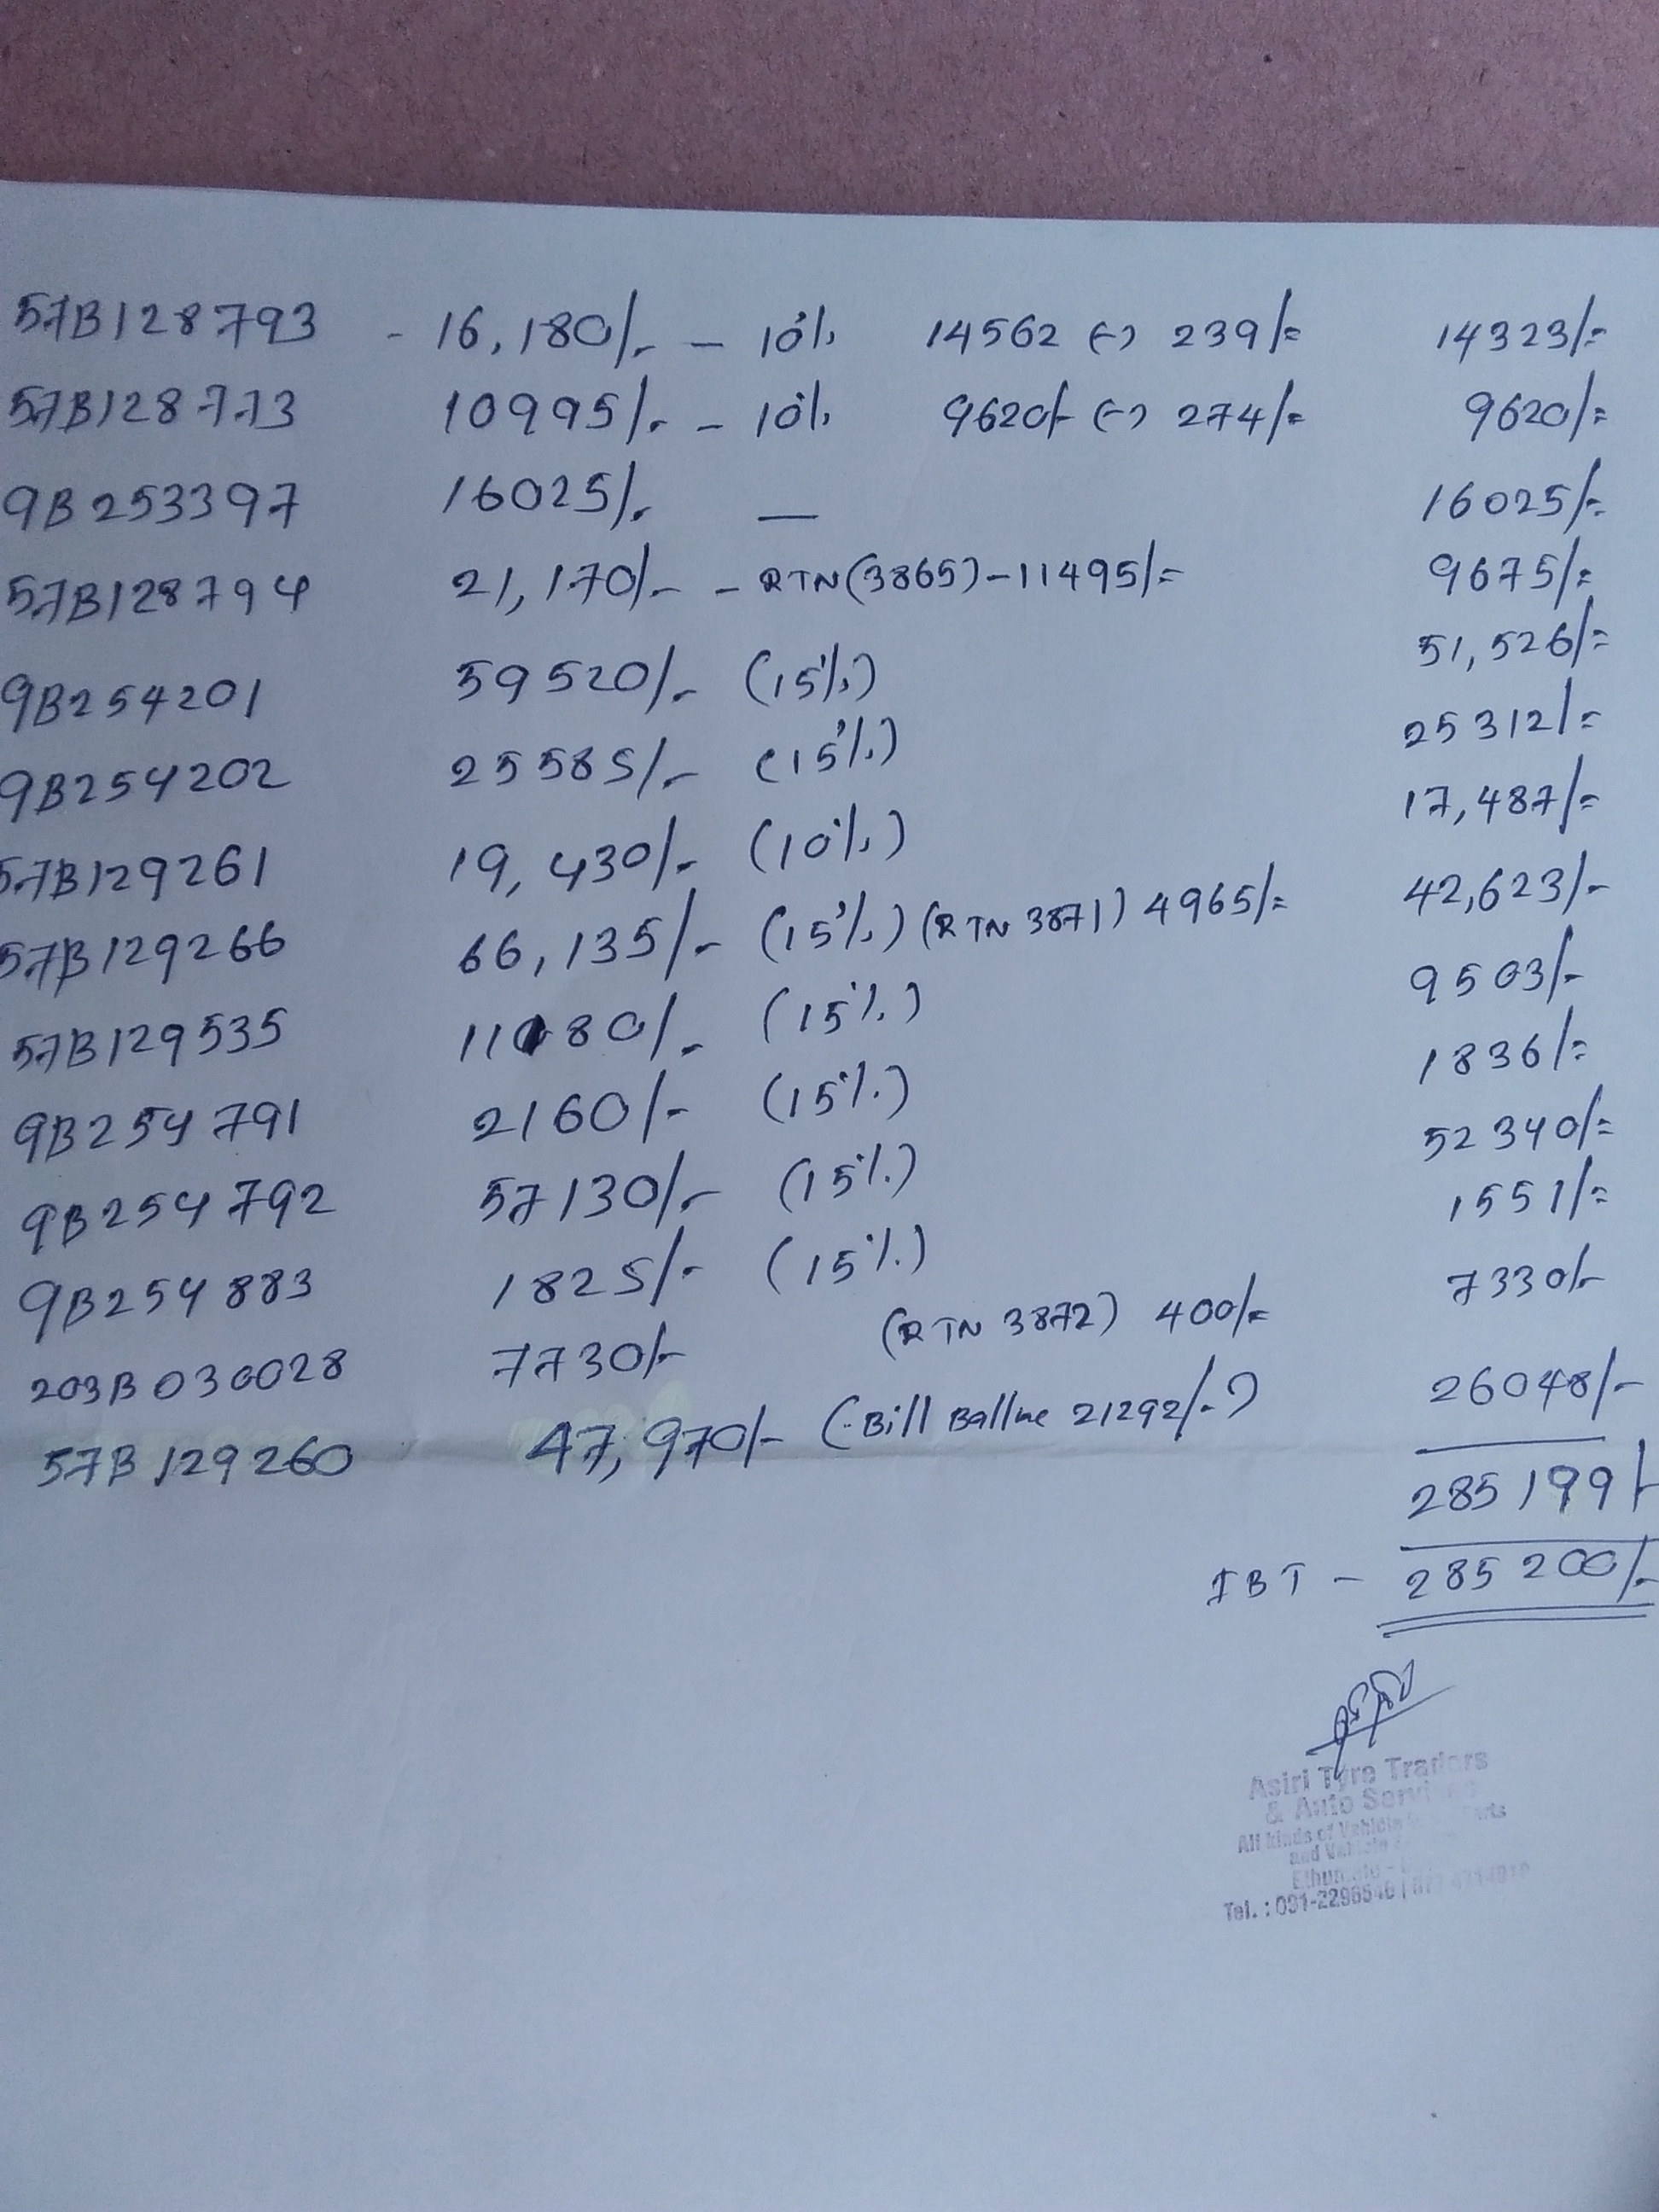 57B128793 - 16,180/- - 10% 14562 (-) 239/= 14323/=
57B128773 10995/- - 10% 9620/- (-) 274/= 9620/=
9B253397 16025/- — 16025/=
57B128794 21,170/- - RTN(3865) - 11495/= 9675/=
9B254201 59520/- (15%) 51,526/=
9B254202 25585/- (15%) 25312/=
57B129261 19,430/- (10%) 17,487/=
57B129266 66,135/- (15%) (RTN 3871) 4965/= 42,623/-
57B129535 11180/- (15%) 9503/-
9B254791 2160/- (15%) 1836/=
9B254792 57130/- (15%) 52340/=
9B254883 1825/- (15%) 1551/=
203B030028 7730/- (RTN 3872) 400/= 7330/-
57B129260 47,970/- (Bill Ballne 21292/-) 26048/-
285199/-
IBT - 285200/-
Asiri Tyre Traders
& Auto
All kinds of Vehicle
and
Tel. :